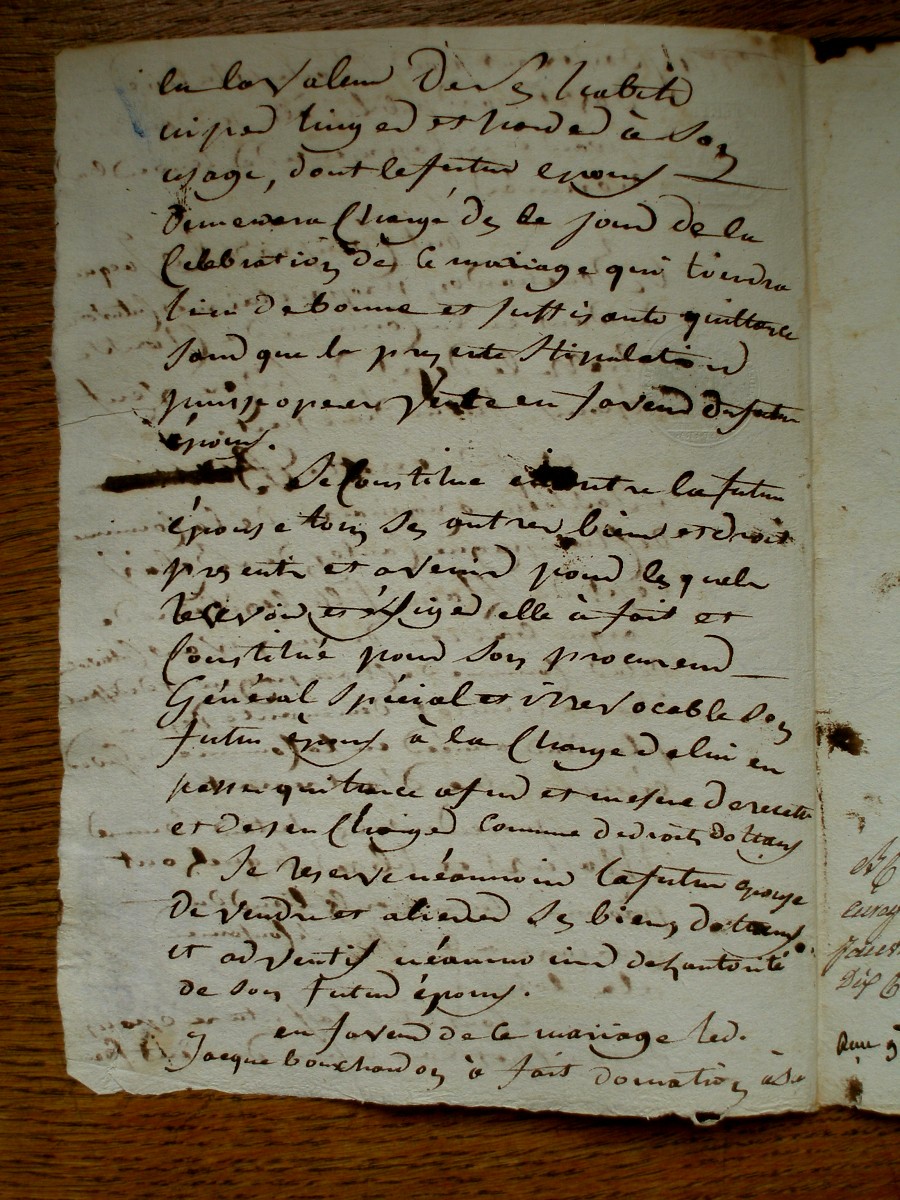 en la valeur de ses habits
nipes linges et hardes à son
usage, dont le futur epoux
demeurera Chargé dès le jour de la
Celebration de ce mariage qui tiendra
lieu de bonne et suffisante quittance
sans que la presente stipulation
puisse operer vente en faveur du futur
époux.
Se Constitue en outre la future
épouse tous ses autres biens et droits
presents et avenir pour lesquels
recevoir et éxiger elle à fait et
Constitué pour son procureur
Général spécial et irrevocable son
futur époux à la Charge de lui en
passer quittance afur et mesure de recette
et de s'en Charger comme de droits dottaux
Se reserve néanmoins la future epouse
de vendre et aliener ses biens dottaux
et adventifs néanmoins de l'autorité
de son futur époux.
en faveur de ce mariage led.
Jacque bouchardon à fait donnation à sa